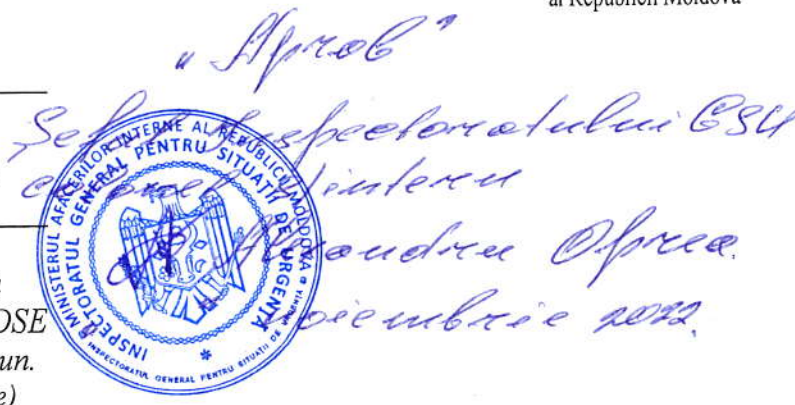 al Republicii Moldova
„Aprob”
Șeful Inspectoratului GSU
Alexandru Oprea.
noiembrie 2022.
OSE
un.
e)
MINISTERUL AFACERILOR INTERNE AL REPUBLICII MOLDOVA
INSPECTORATUL GENERAL PENTRU SITUAȚII DE URGENȚĂ
INSPECTORATUL GENERAL PENTRU SITUAȚII DE URGENȚĂ